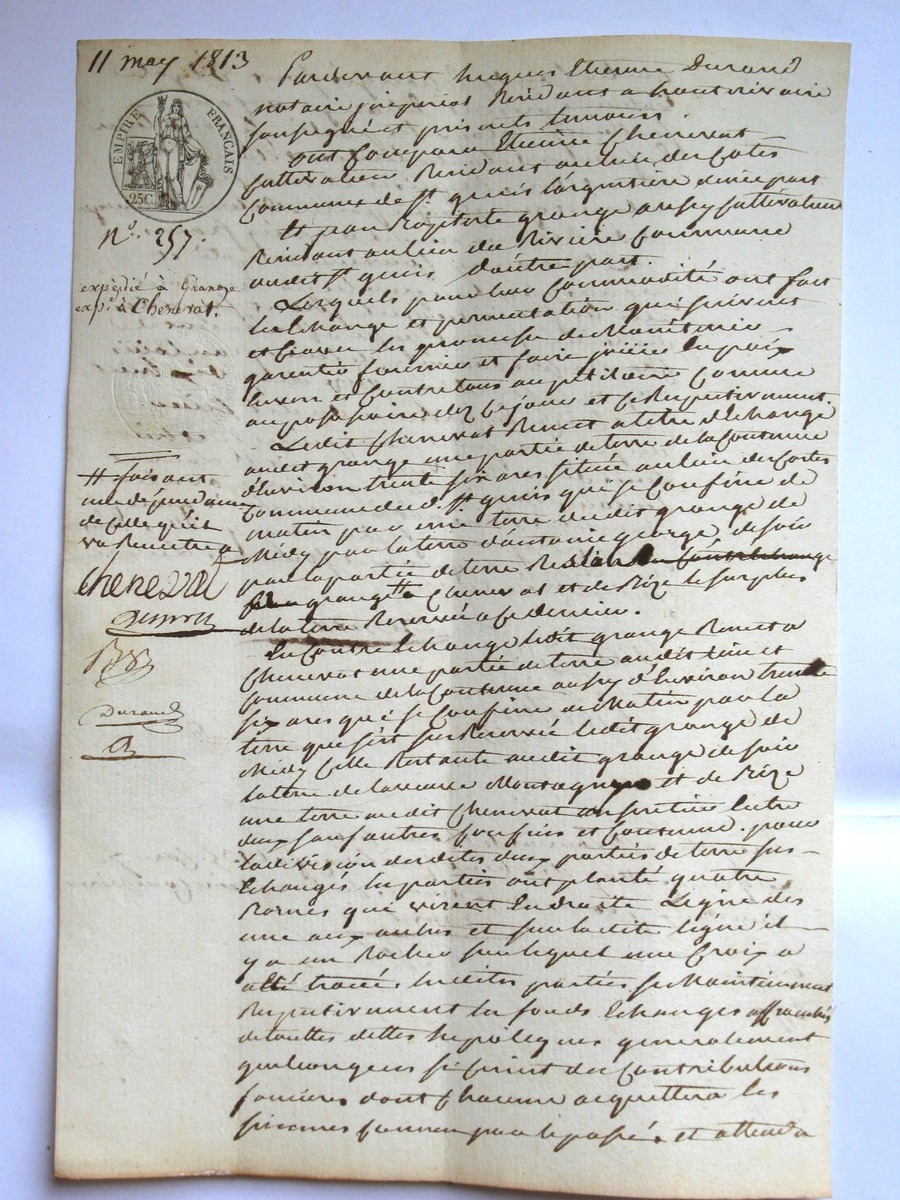 11 may 1813
EMPIRE FRANÇAIS
25C.
N.° 257.
expédié à Grange
exp.é à Cheneval.
# faisant
une dépendance
de celle qu'il
va Remettre
Cheneval
Durand
Pardevant Jacques Etienne Durand
notaire imperial Residant a hautrivoire
soussigné et presents temoins.
ont Comparu Etienne Cheneval
Cultivateur Residant au lieu des Cotes
Commune de S.t genis l'argentiere d'une part
Et Jean Baptiste grange aussy Cultivateur
Residant au lieu du Riviere Commune
audit S.t genis d'autre part.
Lesquels pour leur Commodité ont fait
les Echange et permutation qui suivent
et sous les promesse de Maintenir
garantir fournir et faire jouir En paix
envers et Contre tous au petitoire Comme
au possessoire dez Ce jour et Respectivement.
Ledit Cheneval Remet a titre d'Echange
audit grange une partie de terre de la Contenue
d'Environ trente six ares située au lieu des Cottes
Commune dud. S.t genis qui se Confine de
matin par une terre dudit grange de
Midy par la terre d'antoine george, de soir
par la partie de terre
grange # Cheneval et de Bize le surplus
de la terre Reservée a Ce dernier.
En Contre Echange ledit grange Remet a
Cheneval une partie de terre audit lieu et
Commune de la Contenue aussy d'Environ trente
six ares qui se Confine de Matin par la
terre que s'est Reservée ledit grange de
Midy Celle Restante audit grange de soir
la terre de la veuve Montagny et de Bize
une terre audit Cheneval
sauf autres Confins et Contenue. pour
la division desdites deux parties de terre sus
Echangés les parties ont planté quatre
Bornes qui visent En droite Ligne des
une aux autres et sur ladite ligne il
y a un Rocher sur lequel une Croix a
été tracée. lesdites parties se Maintiennent
Respectivement les fonds Echanges affranchis
de touttes dettes hypotèques generalement
quelconques si Ce n'est des Contributions
foncieres dont Chacune acquittera les
siennes Comme par le passé, et attendu